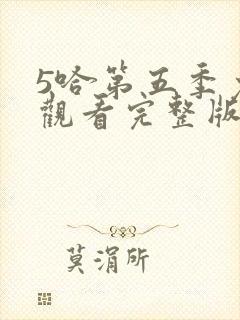 5哈第五季
觀看完整版
莫涓所